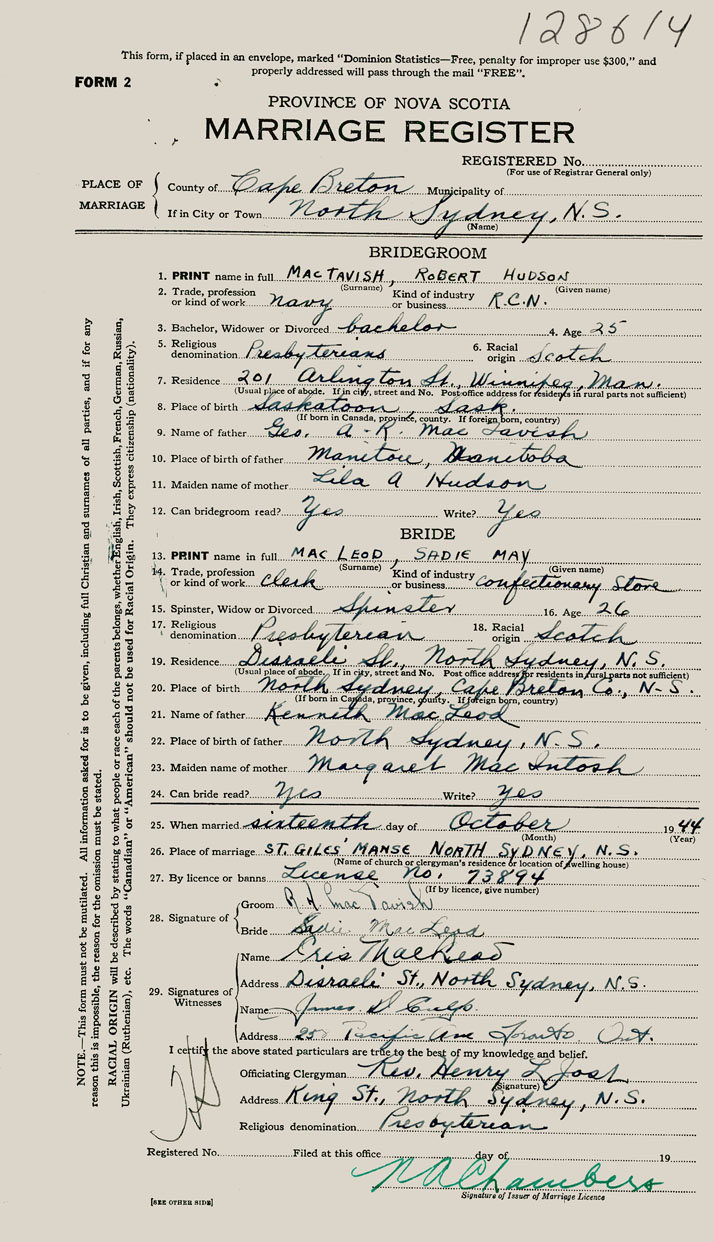 128614
This form, if placed in an envelope, marked "Dominion Statistics—Free, penalty for improper use $300," and
properly addressed will pass through the mail "FREE".
FORM 2
PROVINCE OF NOVA SCOTIA
MARRIAGE REGISTER
REGISTERED No.
(For use of Registrar General only)
PLACE OF MARRIAGE
County of Cape Breton Municipality of
If in City or Town North Sydney, N.S.
(Name)
BRIDEGROOM
1. PRINT name in full MACTAVISH, ROBERT HUDSON
(Surname) (Given name)
2. Trade, profession or kind of work navy Kind of industry or business R.C.N.
3. Bachelor, Widower or Divorced bachelor 4. Age 25
5. Religious denomination Presbyterians 6. Racial origin Scotch
7. Residence 201 Arlington St., Winnipeg, Man.
(Usual place of abode. If in city, street and No. Post office address for residents in rural parts not sufficient)
8. Place of birth Saskatoon, Sask.
(If born in Canada, province, county. If foreign born, country)
9. Name of father Geo. A - K. Mac Tavish
10. Place of birth of father Manitou, Manitoba
11. Maiden name of mother Lila A Hudson
12. Can bridegroom read? Yes Write? Yes
BRIDE
13. PRINT name in full MAC LEOD, SADIE MAY
(Surname) (Given name)
14. Trade, profession or kind of work clerk Kind of industry or business confectionary Store
15. Spinster, Widow or Divorced Spinster 16. Age 26
17. Religious denomination Presbyterian 18. Racial origin Scotch
19. Residence Disraeli St., North Sydney, N.S.
(Usual place of abode. If in city, street and No. Post office address for residents in rural parts not sufficient)
20. Place of birth North Sydney, Cape Breton Co., N-S.
(If born in Canada, province, county. If foreign born, country)
21. Name of father Kenneth Mac Leod
22. Place of birth of father North Sydney, N.S.
23. Maiden name of mother Margaret Mac Intosh
24. Can bride read? Yes Write? Yes
25. When married sixteenth day of October 1944
(Month) (Year)
26. Place of marriage ST. GILES' MANSE NORTH SYDNEY, N.S.
(Name of church or clergyman's residence or location of dwelling house)
27. By licence or banns License No. 73894
(If by licence, give number)
28. Signature of
Groom R.H. Mac Tavish
Bride Sadie MacLeod
29. Signatures of Witnesses
Name
Address Disraeli St., North Sydney, N.S.
Name James
Address Pacific Ave Toronto, Ont.
I certify the above stated particulars are true to the best of my knowledge and belief.
Officiating Clergyman Rev. Henry L Jost
(Signature)
Address King St., North Sydney, N.S.
Religious denomination Presbyterian
Registered No. Filed at this office day of 19
Chambers
Signature of Issuer of Marriage Licence
[SEE OTHER SIDE]
NOTE.—This form must not be mutilated. All information asked for is to be given, including full Christian and surnames of all parties, and if for any
reason this is impossible, the reason for the omission must be stated.
RACIAL ORIGIN will be described by stating to what people or race each of the parents belongs, whether English, Irish, Scottish, French, German, Russian,
Ukrainian (Ruthenian), etc. The words "Canadian" or "American" should not be used for Racial Origin. They express citizenship (nationality).